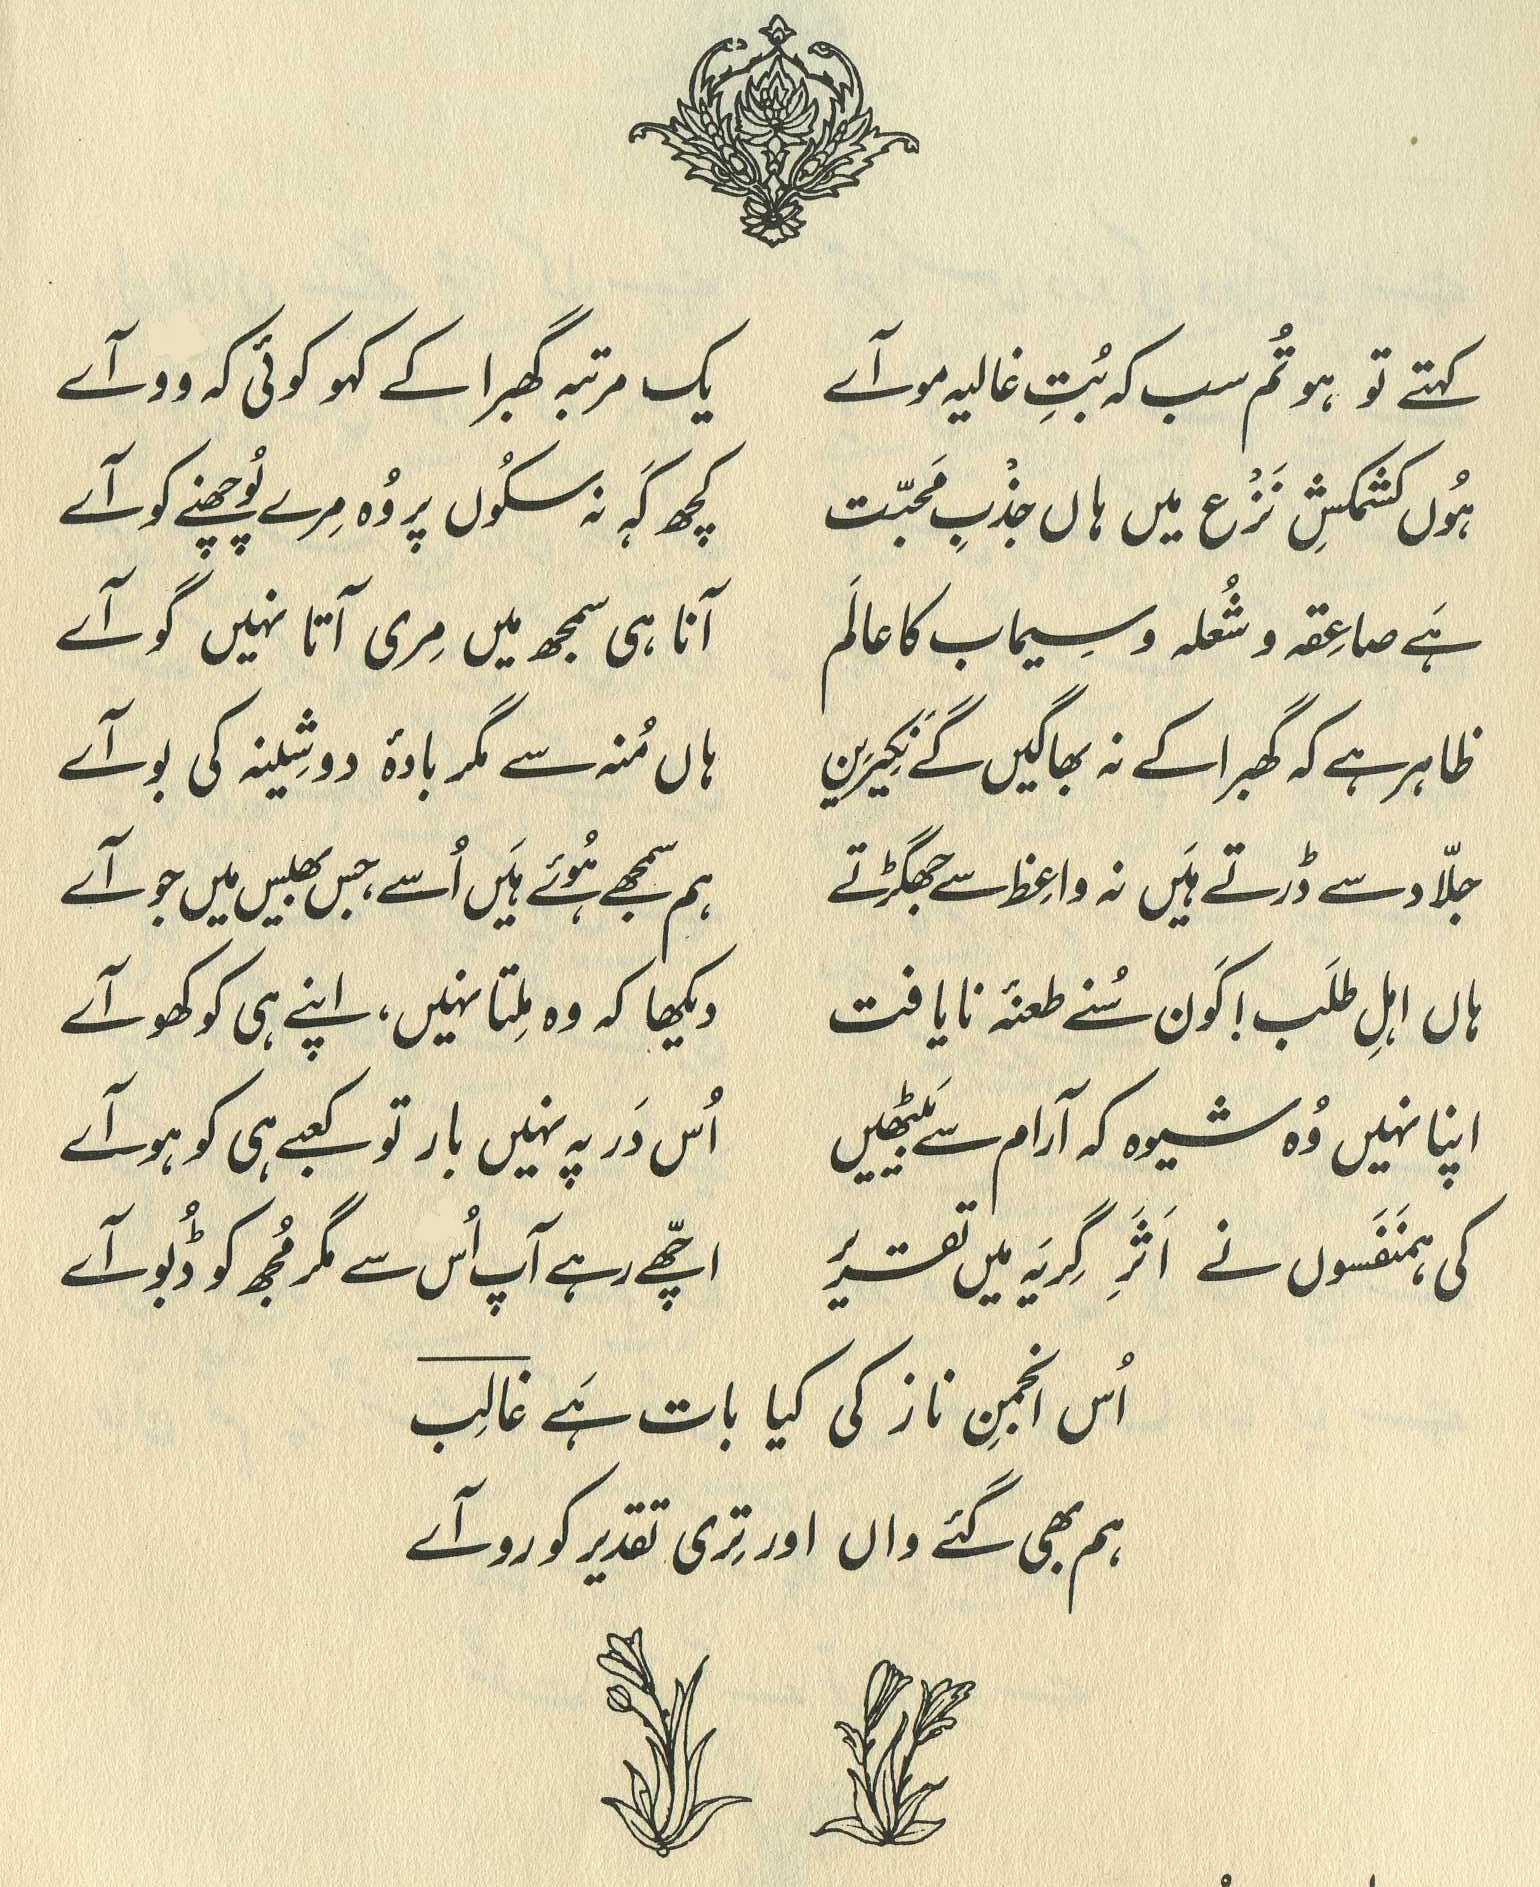 کہتے تو ہو تُم سب کہ بُتِ غالیہ مو آے یک مرتبہ گھبرا کے کہو کوئی کہ وو آے
ہُوں کشمکشِ نَزْع میں ہاں جذْبِ مَحبّت کچھ کَہ نہ سکُوں پر وُہ مِرے پُوچھنے کو آے
ہَے صاعِقہ و شُعلہ و سِیماب کا عالَم آنا ہی سمجھ میں مِری آتا نہیں گو آے
ظاہر ہے کہ گھبرا کے نہ بھاگیں گے نَکِیرَین ہاں مُنہ سے مگر بادۂ دوشِینہ کی بو آے
جلّاد سے ڈرتے ہَیں نہ واعِظ سے جھگڑتے ہم سمجھے ہُوئے ہَیں اُسے، جس بھیس میں جو آے
ہاں اہلِ طلَب! کَون سُنے طعنۂ نایافت دیکھا کہ وہ مِلتا نہیں، اپنے ہی کو کھو آے
اپنا نہیں وُہ شیوہ کہ آرام سے بَیٹھیں اُس دَر پہ نہیں بار تو کعبے ہی کو ہو آے
کی ہمنَفَسوں نے اَثَرِ گِریَہ میں تقریر اچّھے رہے آپ اُس سے مگر مُجھ کو ڈبُو آے
اُس انجمنِ ناز کی کیا بات ہَے غالِب
ہم بھی گئے واں اور تِری تقدیر کو رو آے